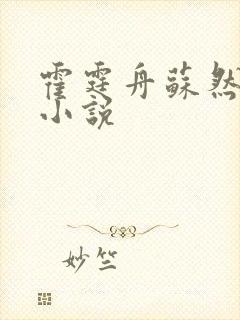 霍霆舟蘇然
小說
妙竺